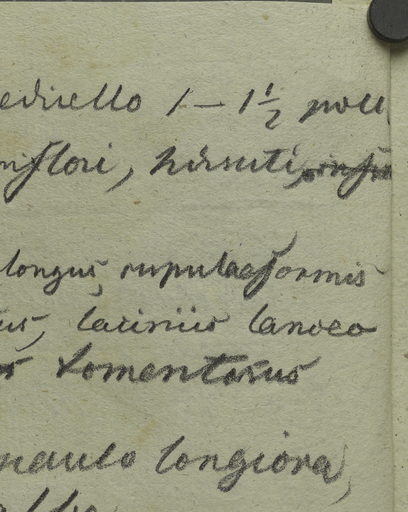 edicello 1 — 1½ poll
nflori, hirsuti,
longus, cupulaeformis
us, laciniis lanceo
tomentosus
paulo longiora,
alba